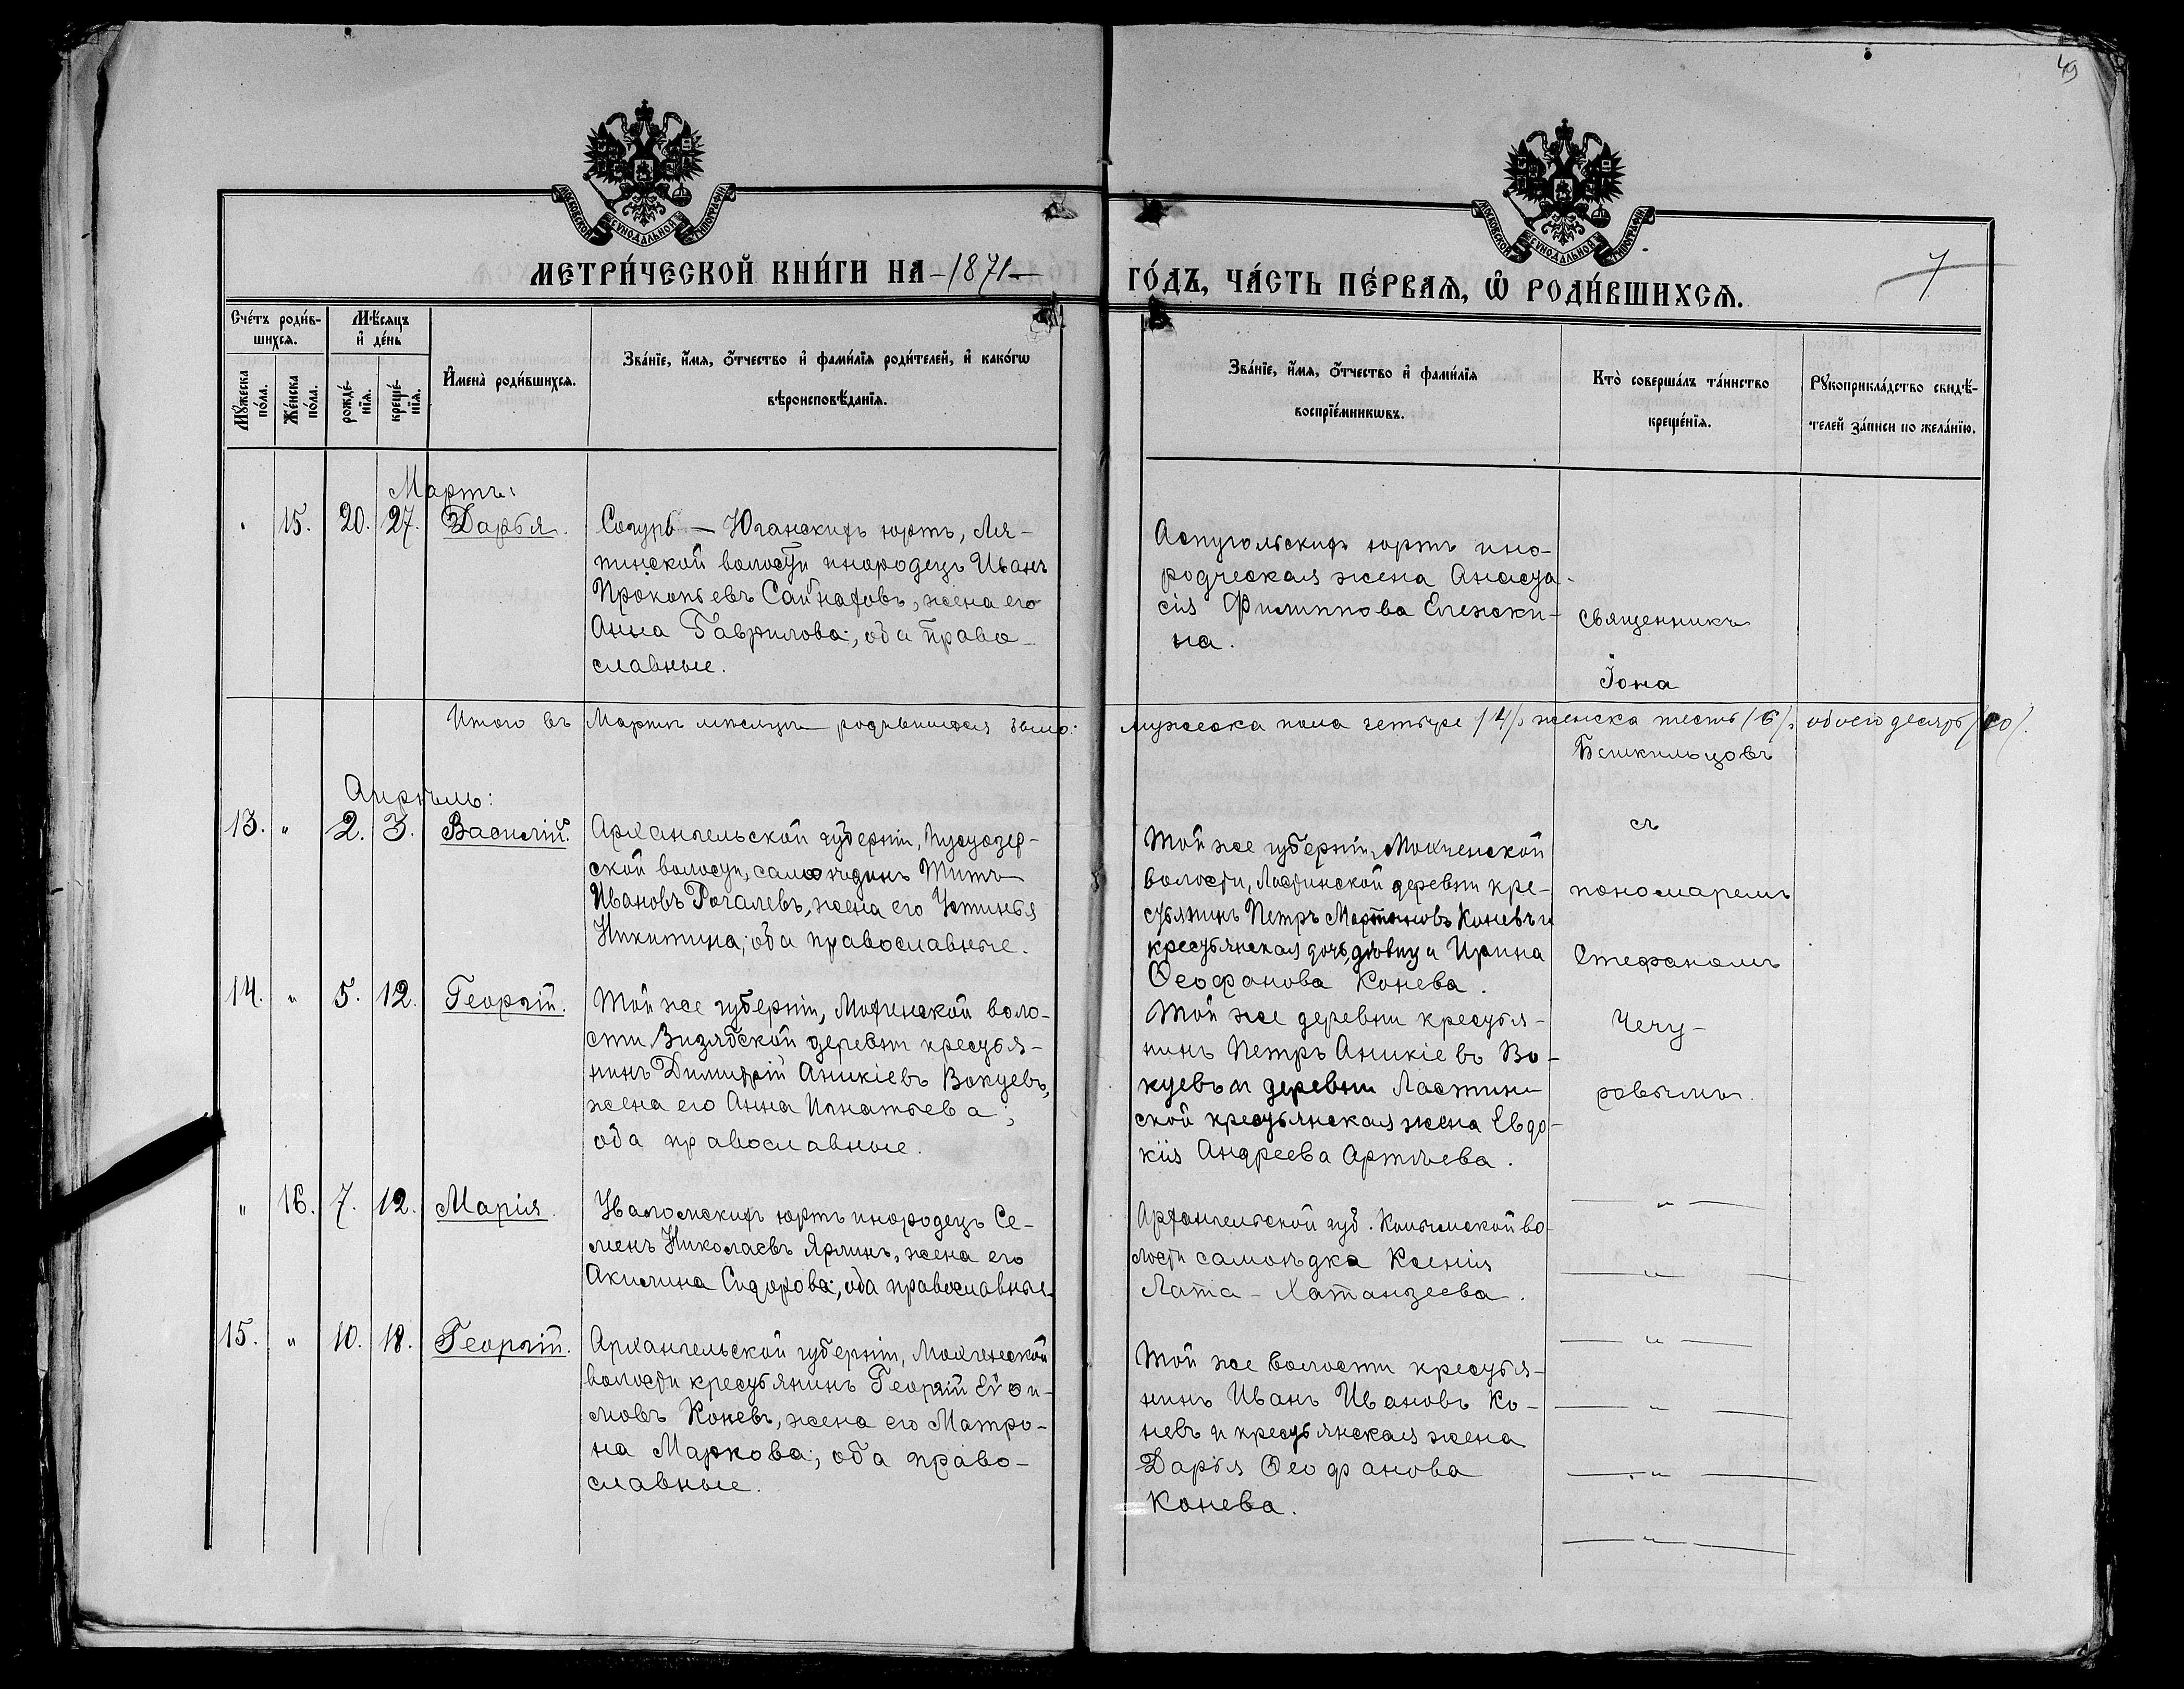 49
МОСКОВСКОЙ СѴНОДАЛЬНОЙ ТИПОГРАФІИ
МОСКОВСКОЙ СѴНОДАЛЬНОЙ ТИПОГРАФІИ
МЕТРИ́ЧЕСКОЙ КНИ́ГИ НА -1871-
ГО́ДЪ, ЧА́СТЬ ПЕ́РВАЯ, Ѡ҆ РОДИ́ВШИХСЯ.
7
Сче́тъ роди́в-
шихся.
Мꙋ́жеска по́ла.
Же́нска по́ла.
Мѣ́сяцъ
и҆ де́нь
рожде́-
нїя.
креще́-
нїя.
И҆мена̀ роди́вшихся.
Зва́нїе, и҆́мя, ѻ҆́тчество и҆ фами́лїя роди́телей, и҆ како́гѡ
вѣроисповѣ́данїя.
Зва́нїе, и҆́мя, ѻ҆́тчество и҆ фами́лїя
воспрїе́мникѡвъ.
Кто̀ соверша́лъ та́инство
креще́нїя.
Рꙋкоприкла́дство свидѣ́-
телей за́писи по жела́нїю.
Мартъ:
15. 20. 27. Дарья.
Согурь - Юганскихъ юртъ, Ля-
пинской волости инородецъ Иванъ
Прокопьевъ Сайнаховъ, жена его
Анна Гаврилова; оба право-
славные.
юртъ ино-
родческая жена Анаста-
сія Филиппова
на.
Священникъ
Іона
Итого въ Мартѣ мѣсяцѣ родившихся было: мужеска пола четыре /4/, женска шесть /6/, обоего десять /10/.
Бешкильцовъ
Апрѣль:
13. " 2. 3. Василій.
Архангельской губерніи, Пустозер-
ской волости, самоѣдинъ Титъ
Ивановъ Рочалевъ, жена его Устинья
Никитина; оба православные.
Той же губерніи, Мохченской
волости, Ластинской деревни кре-
стьянинъ Петръ Мартыновъ Коневъ и
крестьянская дочь, дѣвица Ирина
Ѳеофанова Конева.
съ
пономаремъ
Стефаномъ
14. " 5. 12. Георгій.
Той же губерніи, Мохченской воло-
сти Визябской деревни крестья-
нинъ Димитрій Аникіевъ Вокуевъ,
жена его Анна Игнатьева;
оба православные.
Той же деревни крестья-
нинъ Петръ Аникіевъ Во-
куевъ и деревни Ластин-
ской крестьянская жена Евдо-
кія Андреева Артѣева.
Чечу-
ровымъ.
" 16. 7. 12. Марія.
юртъ инородецъ Се-
менъ Николаевъ Яркинъ, жена его
Акилина Сидорова; оба православные.
Архангельской губ. во-
лости самоѣдка Ксенія
Лата-Хатанзеева.
— " —
— " —
15. " 10. 18. Георгій.
Архангельской губерніи, Мохченской
волости крестьянинъ Георгій Евѳи-
мовъ Коневъ, жена его Матро-
на Маркова; оба право-
славные.
Той же волости крестья-
нинъ Иванъ Ивановъ Ко-
невъ и крестьянская жена
Дарья Ѳеофанова
Конева.
— " —
— " —
— " —
— " —